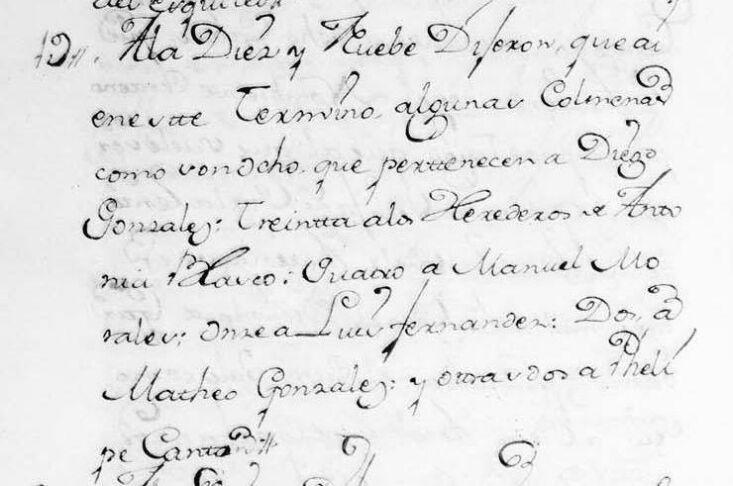 del esquileo
19,, A la Diez y Nuebe Dijeron, que ai
en este Termino algunas Colmenas
como son ocho que pertenecen a Diego
Gonzales: Treintta a los Herederos de Anto
nia Blasco: Quatro a Manuel Mo
rales: Onze a Luis fernandez: Dos, a
Matheo Gonzales: y ottras dos a Pheli
pe Canto